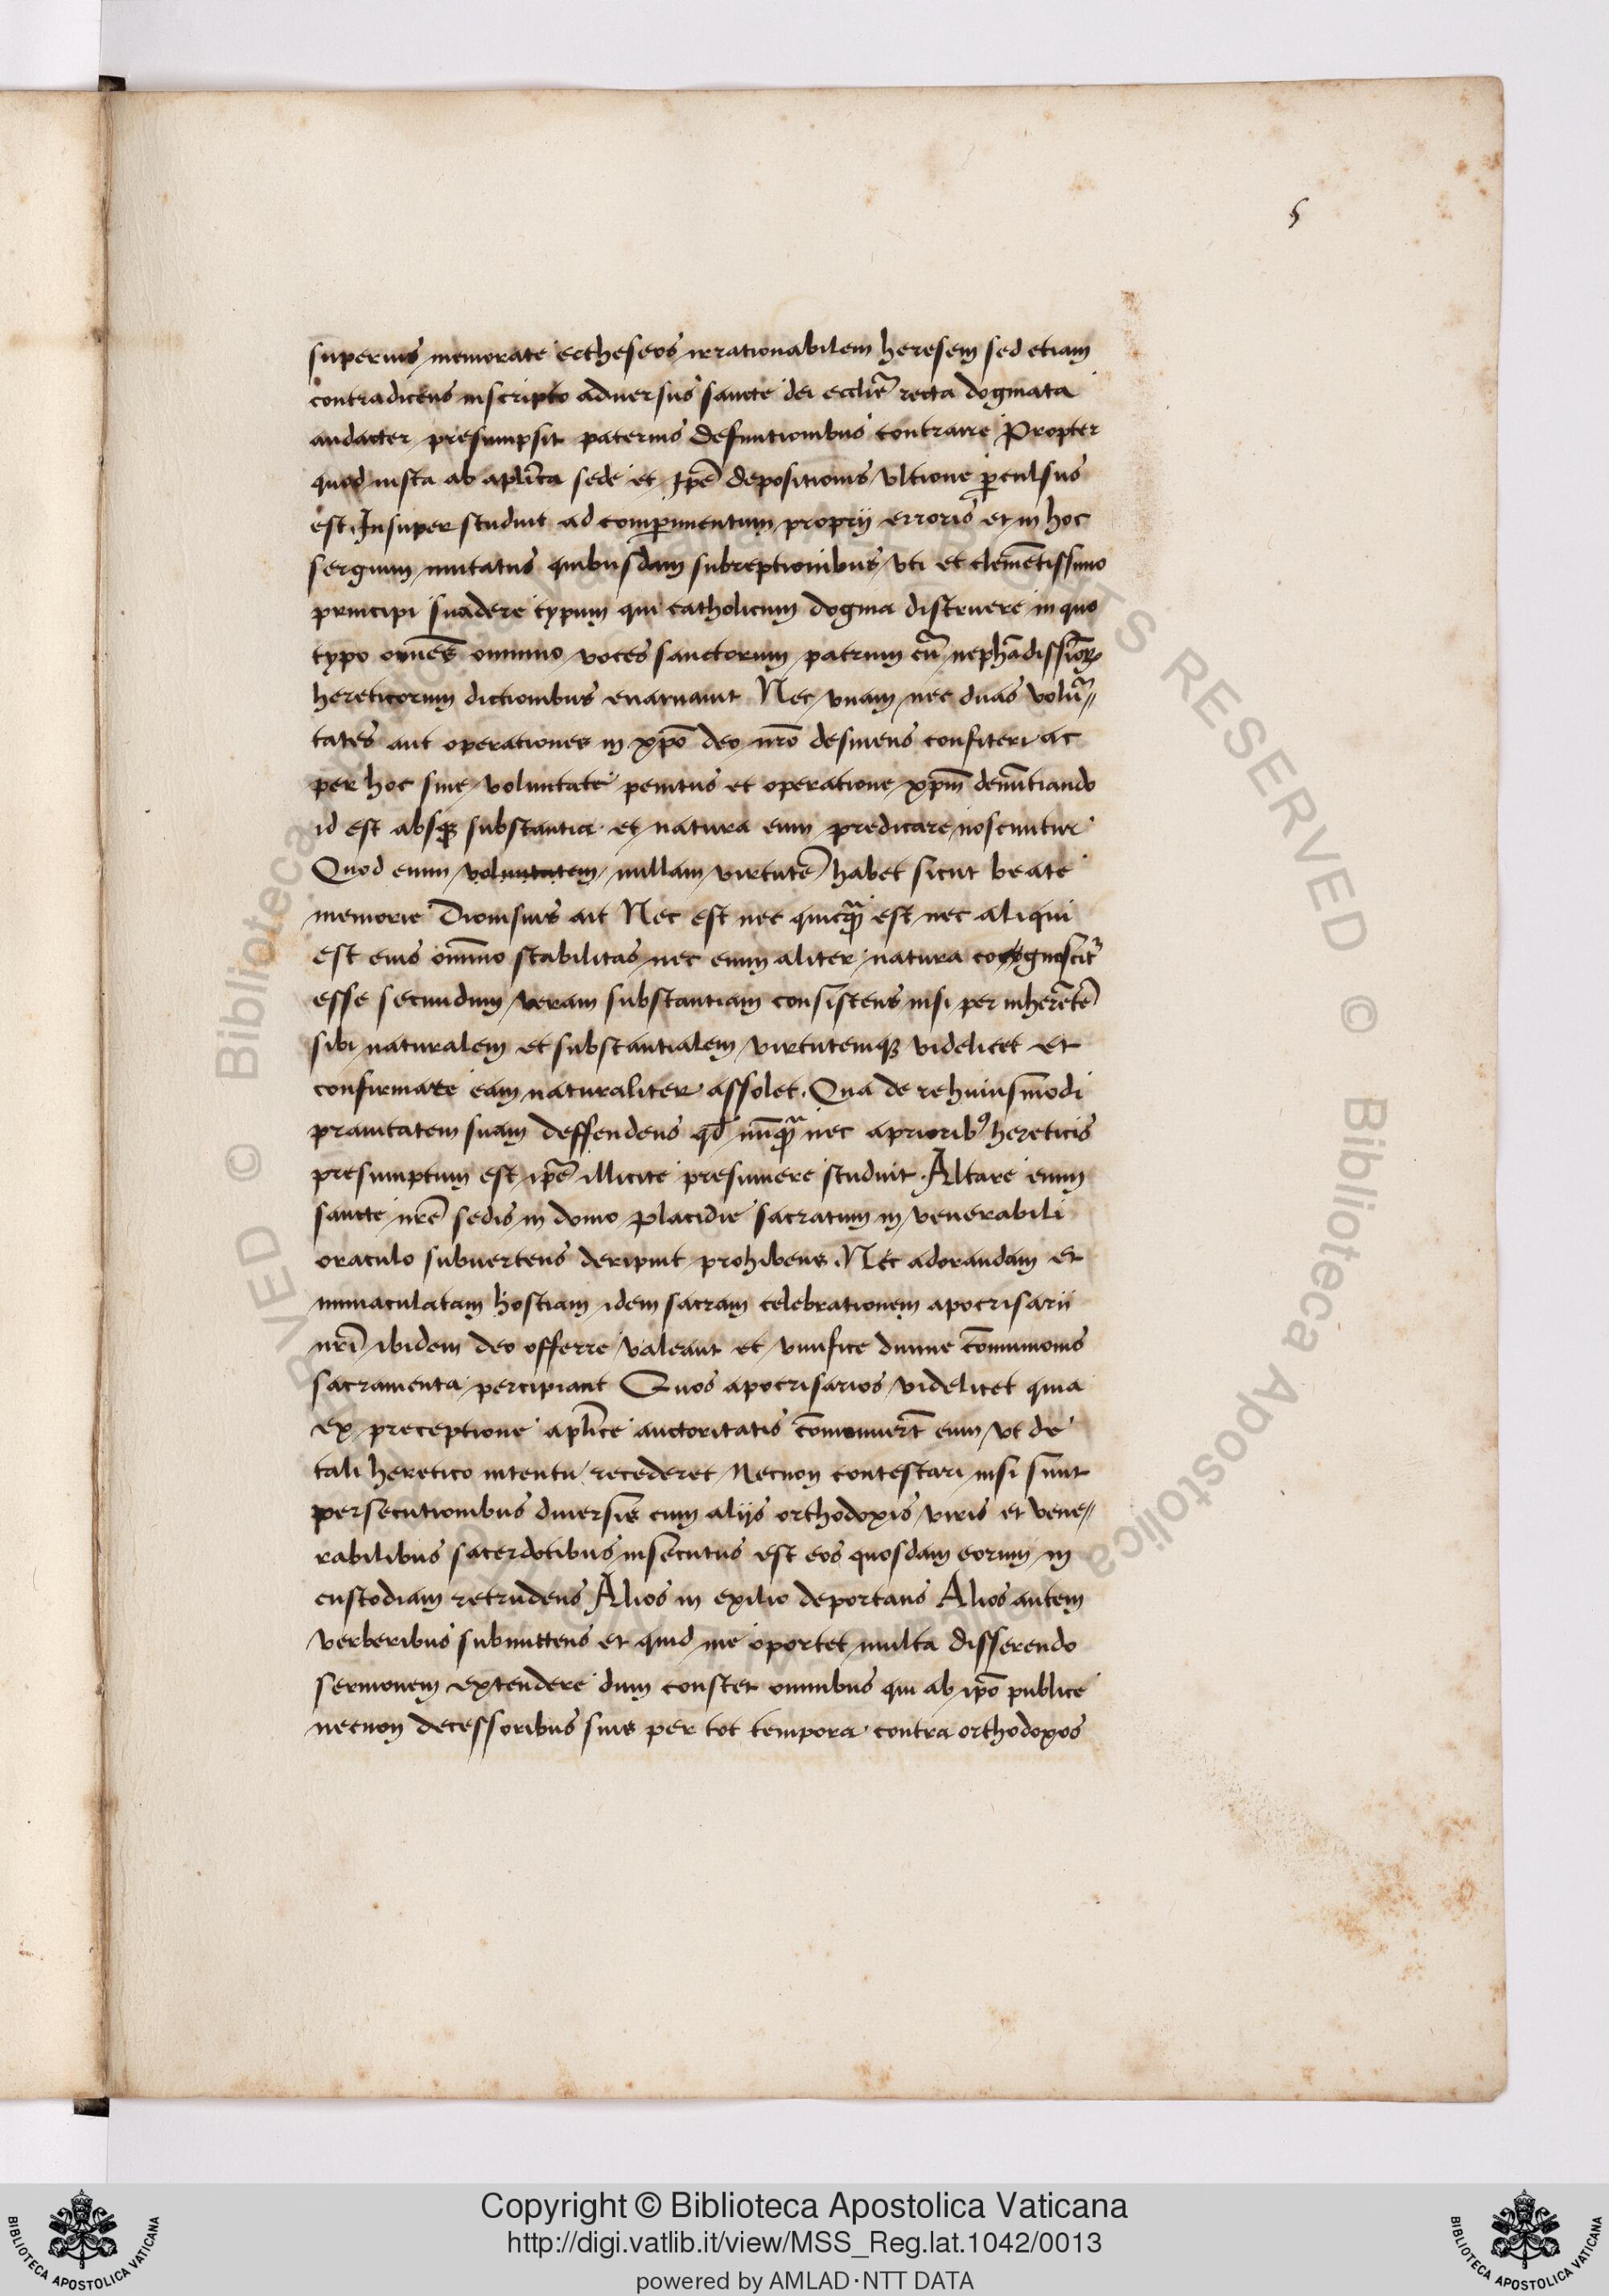 5
superius memorate ectheseos irrationabilem heresem sed etiam
contradicens inscripto aduersus sancte dei ecclīe recta dogmata
audacter presumpsit paternis defunitionibus contraire Propter
quod iusta ab aplīca sede et ipē depositionis ultione ꝑculsus
est. Insuper studuit ad comꝑimentum proprij erroris et in hoc
sergium imitatus quibusdam subreptionibus uti et clemētissimo
principi suadere typum qui catholicum dogma distruere in quo
typo omnēs omnino voces sanctorum patrum cū nephādissīoꝝ
hereticorum dictionibus enaruauit Nec vnam nec duas volū〃
tates aut operationes in xp̄o deo nr̄o desinens confiteri ac
per hoc sine voluntate penitus et operatione xp̄m denūtiando
id est absqꝫ substantia et natura eum predicare noscuntur
Quod enim voluntatem nullam virtutē habet sicut beate
memorie Dionisius ait Nec est nec quicꝙ̄ est nec aliqui
est eius om̄ino stabilitas nec enim aliter natura cognoscit᷑
esse secundum veram substantiam consistens nisi per inherētē
sibi naturalem et substantialem virtutemqꝫ videlicet et
confirmare eam naturaliter assolet. Qua de re huiusm̄odi
prauitatem suam deffendens qd̄ nūꝙ̄ nec a prioribꝰ hereticis
presumptum est ip̄e illicite presumere studuit. Altare enim
sancte nr̄e sedis in domo placidie sacratum in venerabili
oraculo subuertens deripuit prohibens. Nec adorandam et
immaculatam hostiam idem sacram celebrationem apocrisarii
nr̄i ibidem deo offerre valeant et viuifice diuine cōmunionis
sacramenta percipiant Quos apocrisarios videlicet quia
ex preceptione aplīce auctoritatis cōmonuert̄ eum vt de
tali heretico intentu recederet Necnon contestari nisi sunt
persecutionibus diuersis cum alijs orthodoxis viris et vene〃
rabilibus sacerdotibus insecutus est eos quosdam eorum in
custodiam retrudens Alios in exilio deportans Alios autem
verberibus submittens et quid me oportet multa disserendo
sermonem extendere dum constet omnibus qui ab ip̄o publice
necnon decessoribus suis per tot tempora contra orthodoxos
Copyright © Biblioteca Apostolica Vaticana
http://digi.vatlib.it/view/MSS_Reg.lat.1042/0013
powered by AMLAD·NTT DATA